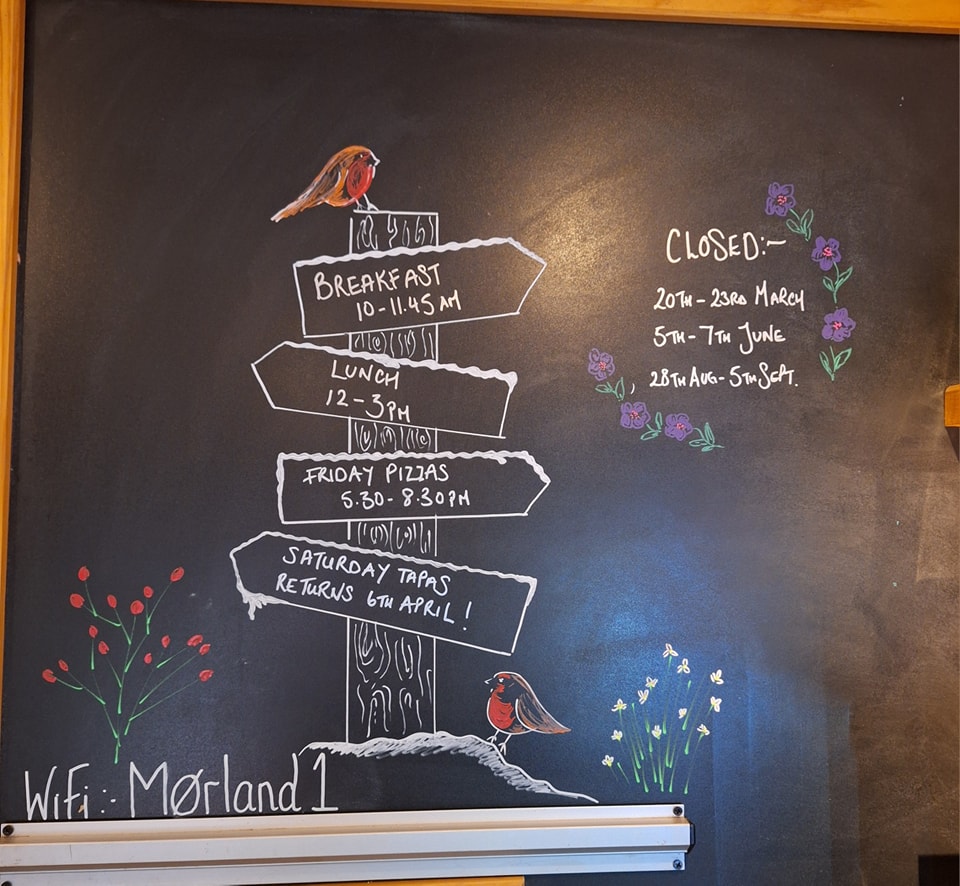 BREAKFAST
10-11.45 AM
LUNCH
12-3PM
FRIDAY PIZZAS
5.30-8.30PM
SATURDAY TAPAS
RETURNS 6TH APRIL!
CLOSED:-
20TH-23RD MARCH
5TH-7TH JUNE
28TH AUG-5TH SEPT.
WiFi:- Mørland 1